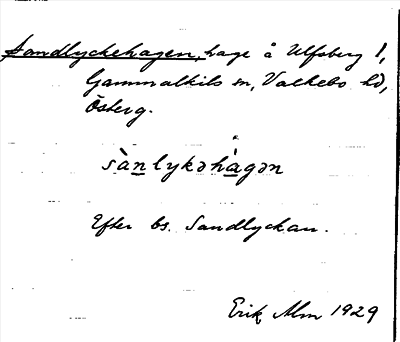 Sandlyckehagen, hage å Ulfsberg 1,
Gammalkils sn, Valkebo hd,
Österg.
sànlykəhàgən
Efter bs. Sandlyckan.
Erik Alm 1929